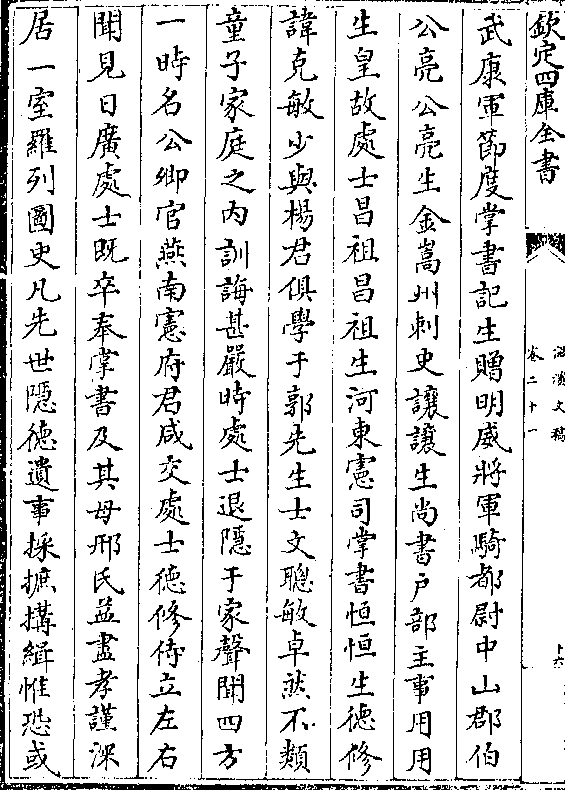 欽定四庫全書
滋溪文稿
卷二十一
十六
武康軍節度掌書記生贈明威將軍騎都尉中山郡伯
公亮公亮生金嵩州刺史讓讓生尚書戶部主事用用
生皇故處士昌祖昌祖生河東憲司掌書恒恒生德修
諱克敏少與楊君俱學于郭先生士文聰敏卓然不類
童子家庭之内訓誨甚嚴時處士退隱于家聲聞四方
一時名公卿官燕南憲府君咸交處士德修侍立左右
聞見日廣處士既卒奉掌書及其母邢氏益盡孝謹深
居一室羅列圖史凡先世隱德遺事採摭搆緝惟恐或